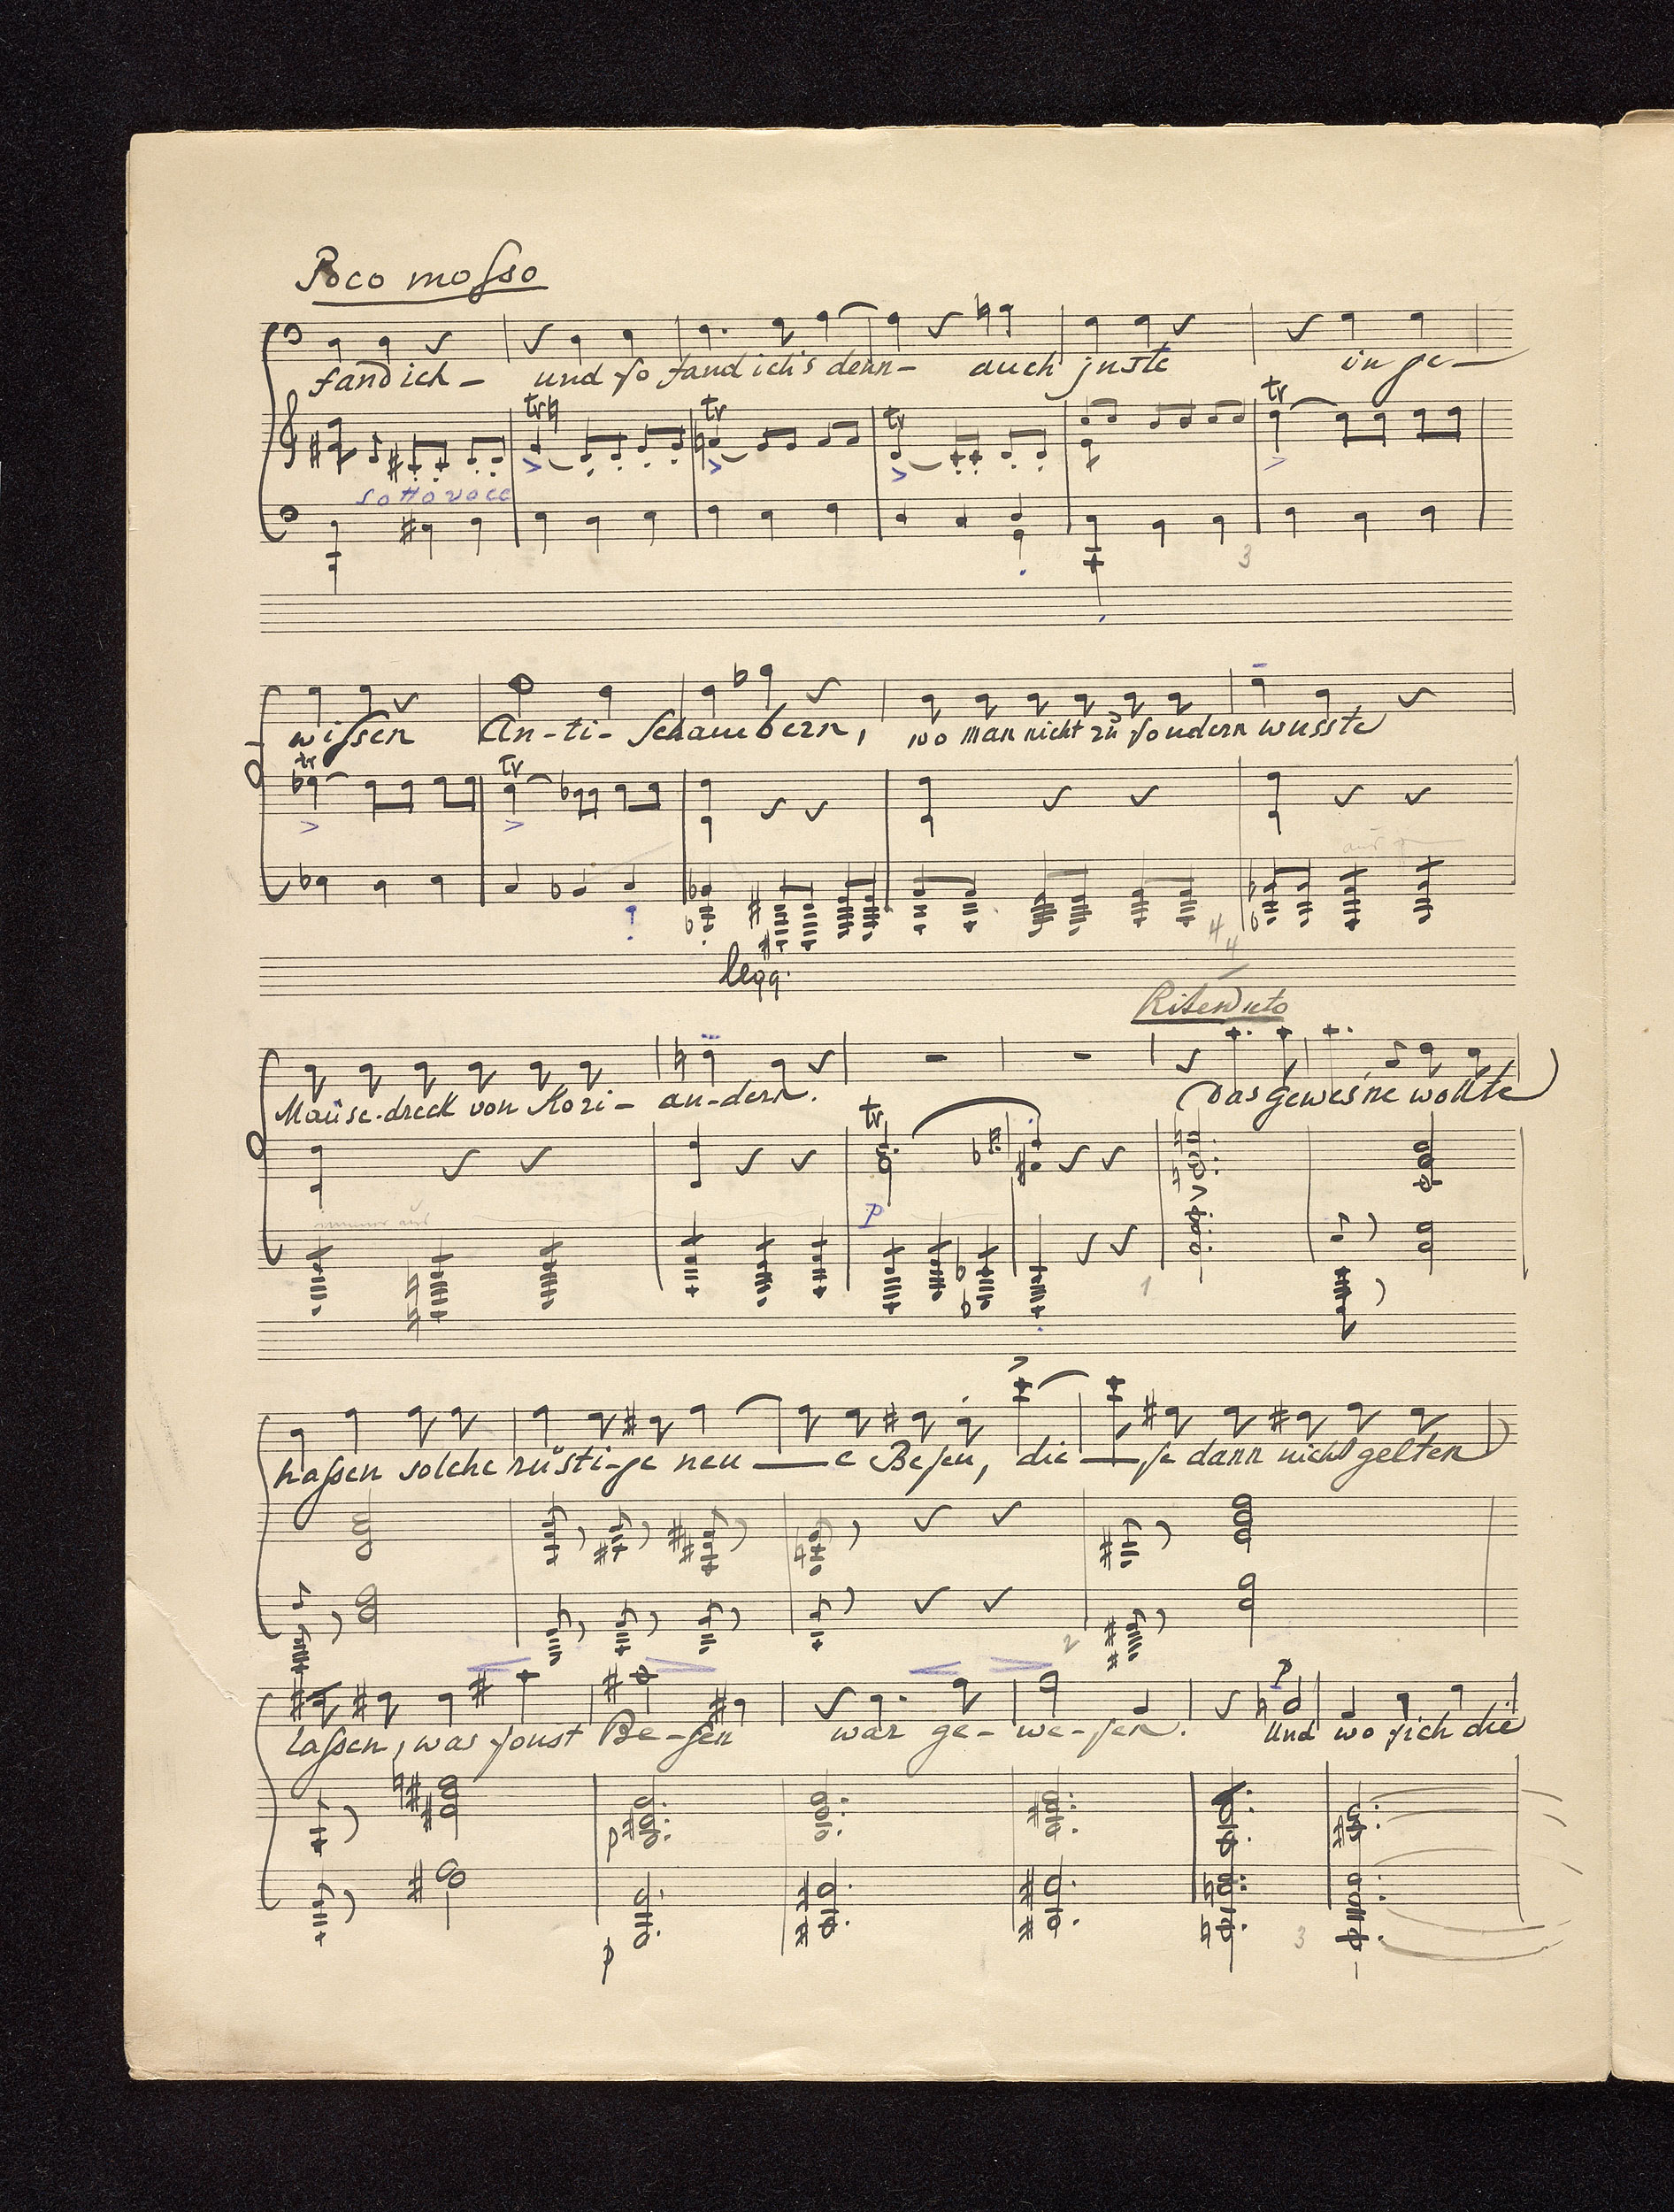 Poco mosso
fand ich – und so fand ich's denn – auch juste in ge –
tr tr tr tr tr
sotto voce
3
wissen An-ti- Schaubern, wo man nicht zu sondern wusste
tr tr
4 4
legg.
Ritenuto
Mause-dreck von Kori- an-dern. Das gewes'ne wollte
tr
immer aus
p
1
hassen solche rüsti-ge neu — e Besen, die — se dann nicht gelten
2
p
lassen, was sonst Be-sen war ge- we-sen. Und wo sich die
p
p
3